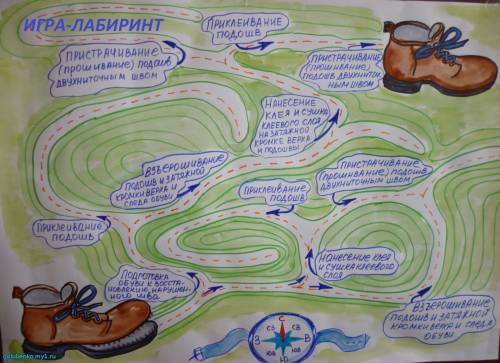 ИГРА-ЛАБИРИНТ
ПРИКЛЕИВАНИЕ
ПОДОШВ
ПРИСТРАЧИВАНИЕ
(прошивание) подошв
двухниточным швом
ПРИСТРАЧИВАНИЕ
(прошивание)
подошв двухниточ-
ным швом
НАНЕСЕНИЕ
КЛЕЯ И СУШКА
КЛЕЕВОГО СЛОЯ
НА ЗАТЯЖНОЙ
КРОМКЕ ВЕРХА
И ПОДОШВЫ
ВЗЪЕРОШИВАНИЕ
ПОДОШВ И ЗАТЯЖНОЙ
КРОМКИ ВЕРХА И
СЛЕДА ОБУВИ
ПРИСТРАЧИВАНИЕ
(прошивание) подошв
двухниточным швом
ПРИКЛЕИВАНИЕ
ПОДОШВ
ПРИКЛЕИВАНИЕ
ПОДОШВ
ПОДГОТОВКА
ОБУВИ К ВОССТА-
НОВЛЕНИЮ НАРУШЕН-
НОГО ШВА
НАНЕСЕНИЕ КЛЕЯ
И СУШКА КЛЕЕВОГО
СЛОЯ
ВЗЪЕРОШИВАНИЕ
ПОДОШВ И ЗАТЯЖНОЙ
КРОМКИ ВЕРХА И СЛЕДА
ОБУВИ
С
СЗ СВ
З В
ЮЗ ЮВ
Ю
golubenko.my1.ru